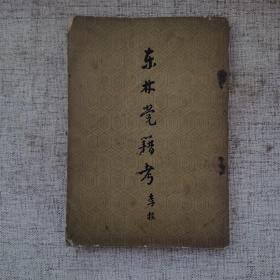 东林党籍考
李棪